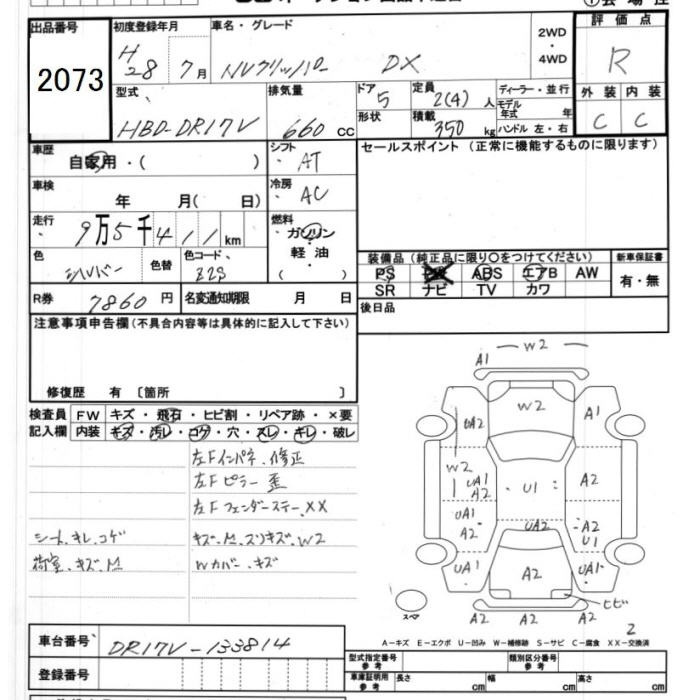 出品番号 2073
初度登録年月 H28 7月
車名・グレード NVクリッパー DX
2WD・4WD
評価点 R
型式 HBD-DR17V
排気量 660 cc
ドア 5
形状
定員 2(4) 人
積載 350 kg
ディーラー・並行
モデル年式 年
ハンドル 左・右
外装 内装
C C
車歴 自家用・( )
シフト AT
セールスポイント (正常に機能するものに限ります)
車検 年 月( 日)
冷房 AC
走行 9万5千411km
燃料 ガソリン・軽油 ( )
色 シルバー 色替 色コード Z2S
装備品 (純正品に限り〇をつけてください) 新車保証書
PS ABS エアB AW 有・無
SR ナビ TV カワ
R券 7860 円 名変通知期限 月 日
後日品
注意事項申告欄 (不具合内容等は具体的に記入して下さい)
修復歴 有 〔箇所 〕
検査員 FW キズ・飛石・ヒビ割・リペア跡・×要
記入欄 内装 キズ・汚レ・コゲ・穴・スレ・キレ・破レ
左Fインパネ、修正
左Fピラー 歪
左Fフェンダーステー、XX
シート、キレ、コゲ キズ、M、スリキズ、W2
荷室、キズ、M Wカバー、キズ
W2
A1
W2
UA2 A1
W2 UA1 A2 U1 A2
UA1 A2 UA2 A2 U1
UA1 A2 UA1
ヒビ
A2 A2 A2
スペア
2
A-キズ E-エクボ U-凹み W-補修跡 S-サビ C-腐食 XX-交換済
車台番号 DR17V-133814
型式指定番号 参考 類別区分番号 参考
登録番号
車庫証明用 参考 長さ cm 幅 cm 高さ cm